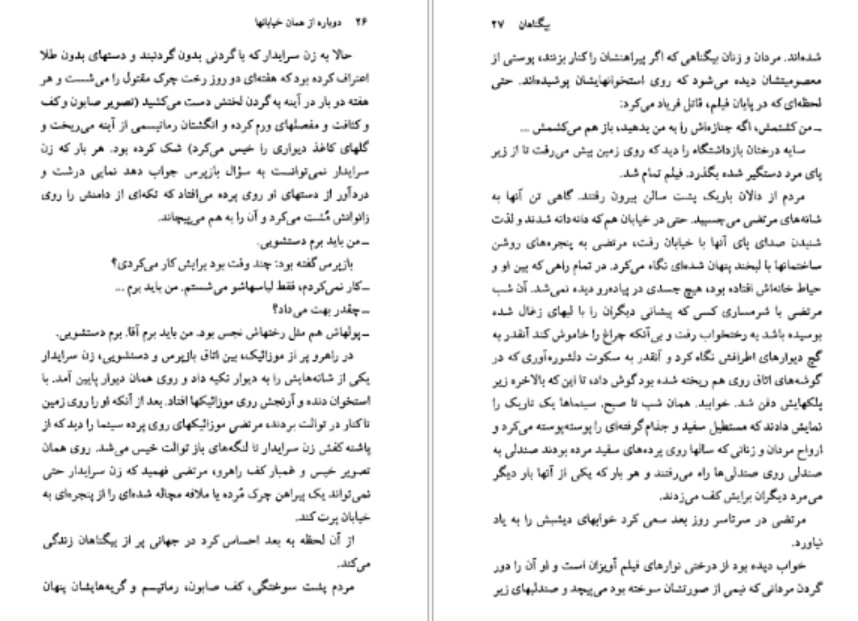 ۲۶ دوباره از همان خیابانها
حالا به زن سرایدار که با گردنی بدون گردنبند و دستهای بدون طلا
اعتراف کرده بود که هفته‌ای دو روز رخت چرک مقتول را می‌شست و هر
هفته دو بار در آینه به گردن لختش دست می‌کشید (تصویر صابون و کف
و کثافت و مفصلهای ورم کرده و انگشتان رماتیسمی از آینه می‌ریخت و
گلهای کاغذ دیواری را خیس می‌کرد) شک کرده بود. هر بار که زن
سرایدار نمی‌توانست به سؤال بازپرس جواب دهد نمایی درشت و
دردآور از دستهای او روی پرده می‌افتاد که تکه‌ای از دامنش را روی
زانوانش مُشت می‌کرد و آن را به هم می‌پیچاند.
ـ من باید برم دستشویی.
بازپرس گفته بود: چند وقت بود برایش کار می‌کردی؟
ـ کار نمی‌کردم، فقط لباسهاشو می‌شستم. من باید برم ...
ـ چقدر بهت می‌داد؟
ـ پولهاش هم مثل رختهاش نجس بود. من باید برم آقا. برم دستشویی.
در راهرو پر از موزائیک، بین اتاق بازپرس و دستشویی، زن سرایدار
یکی از شانه‌هایش را به دیوار تکیه داد و روی همان دیوار پایین آمد. با
استخوان دنده و آرنجش روی موزائیکها افتاد. بعد از آنکه او را روی زمین
تا کنار در توالت بردند، مرتضی موزائیکهای روی پرده سینما را دید که از
پاشنه کفش زن سرایدار تا لنگه‌های باز توالت خیس می‌شد. روی همان
تصویر خیس و غمبار کف راهرو، مرتضی فهمید که زن سرایدار حتی
نمی‌تواند یک پیراهن چرک مُرده یا ملافه مچاله شده‌ای را از پنجره‌ای به
خیابان پرت کند.
از آن لحظه به بعد احساس کرد در جهانی پر از بیگناهان زندگی
می‌کند.
مردم پشت سوختگی، کف صابون، رماتیسم و گریه‌هایشان پنهان
بیگناهان ۲۷
شده‌اند. مردان و زنان بیگناهی که اگر پیراهنشان را کنار بزنند، پوستی از
معصومیتشان دیده می‌شود که روی استخوانهایشان پوشیده‌اند. حتی
لحظه‌ای که در پایان فیلم، قاتل فریاد می‌کرد:
ـ من کشتمش، اگه جنازه‌اش را به من بدهید، باز هم می‌کشمش ...
سایه درختان بازداشتگاه را دید که روی زمین پیش می‌رفت تا از زیر
پای مرد دستگیر شده بگذرد. فیلم تمام شد.
مردم از دالان باریک پشت سالن بیرون رفتند. گاهی تن آنها به
شانه‌های مرتضی می‌چسبید. حتی در خیابان هم که دانه‌دانه شدند و لذت
شنیدن صدای پای آنها با خیابان رفت، مرتضی به پنجره‌های روشن
ساختمانها با لبخند پنهان شده‌ای نگاه می‌کرد. در تمام راهی که بین او و
حیاط خانه‌اش افتاده بود، هیچ جسدی در پیاده‌رو دیده نمی‌شد. آن شب
مرتضی با شرمساری کسی که پیشانی دیگران را با لبهای زغال شده
بوسیده باشد به رختخواب رفت و بی‌آنکه چراغ را خاموش کند آنقدر به
گچ دیوارهای اطرافش نگاه کرد و آنقدر به سکوت دلشوره‌آوری که در
گوشه‌های اتاق روی هم ریخته شده بود گوش داد، تا این که بالاخره زیر
پلکهایش دفن شد. خوابید. همان شب تا صبح، سینماها یک تاریک را
نمایش دادند که مستطیل سفید و جذام گرفته‌ای را پوسته‌پوسته می‌کرد و
ارواح مردان و زنانی که سالها روی پرده‌های سفید مرده بودند صندلی به
صندلی روی صندلی‌ها راه می‌رفتند و هر بار که یکی از آنها بار دیگر
می‌مرد دیگران برایش کف می‌زدند.
مرتضی در سرتاسر روز بعد سعی کرد خوابهای دیشبش را به یاد
نیاورد.
خواب دیده بود از درختی نوارهای فیلم آویزان است و او آن را دور
گردن مردانی که نیمی از صورتشان سوخته بود می‌پیچد و صندلیهای زیر